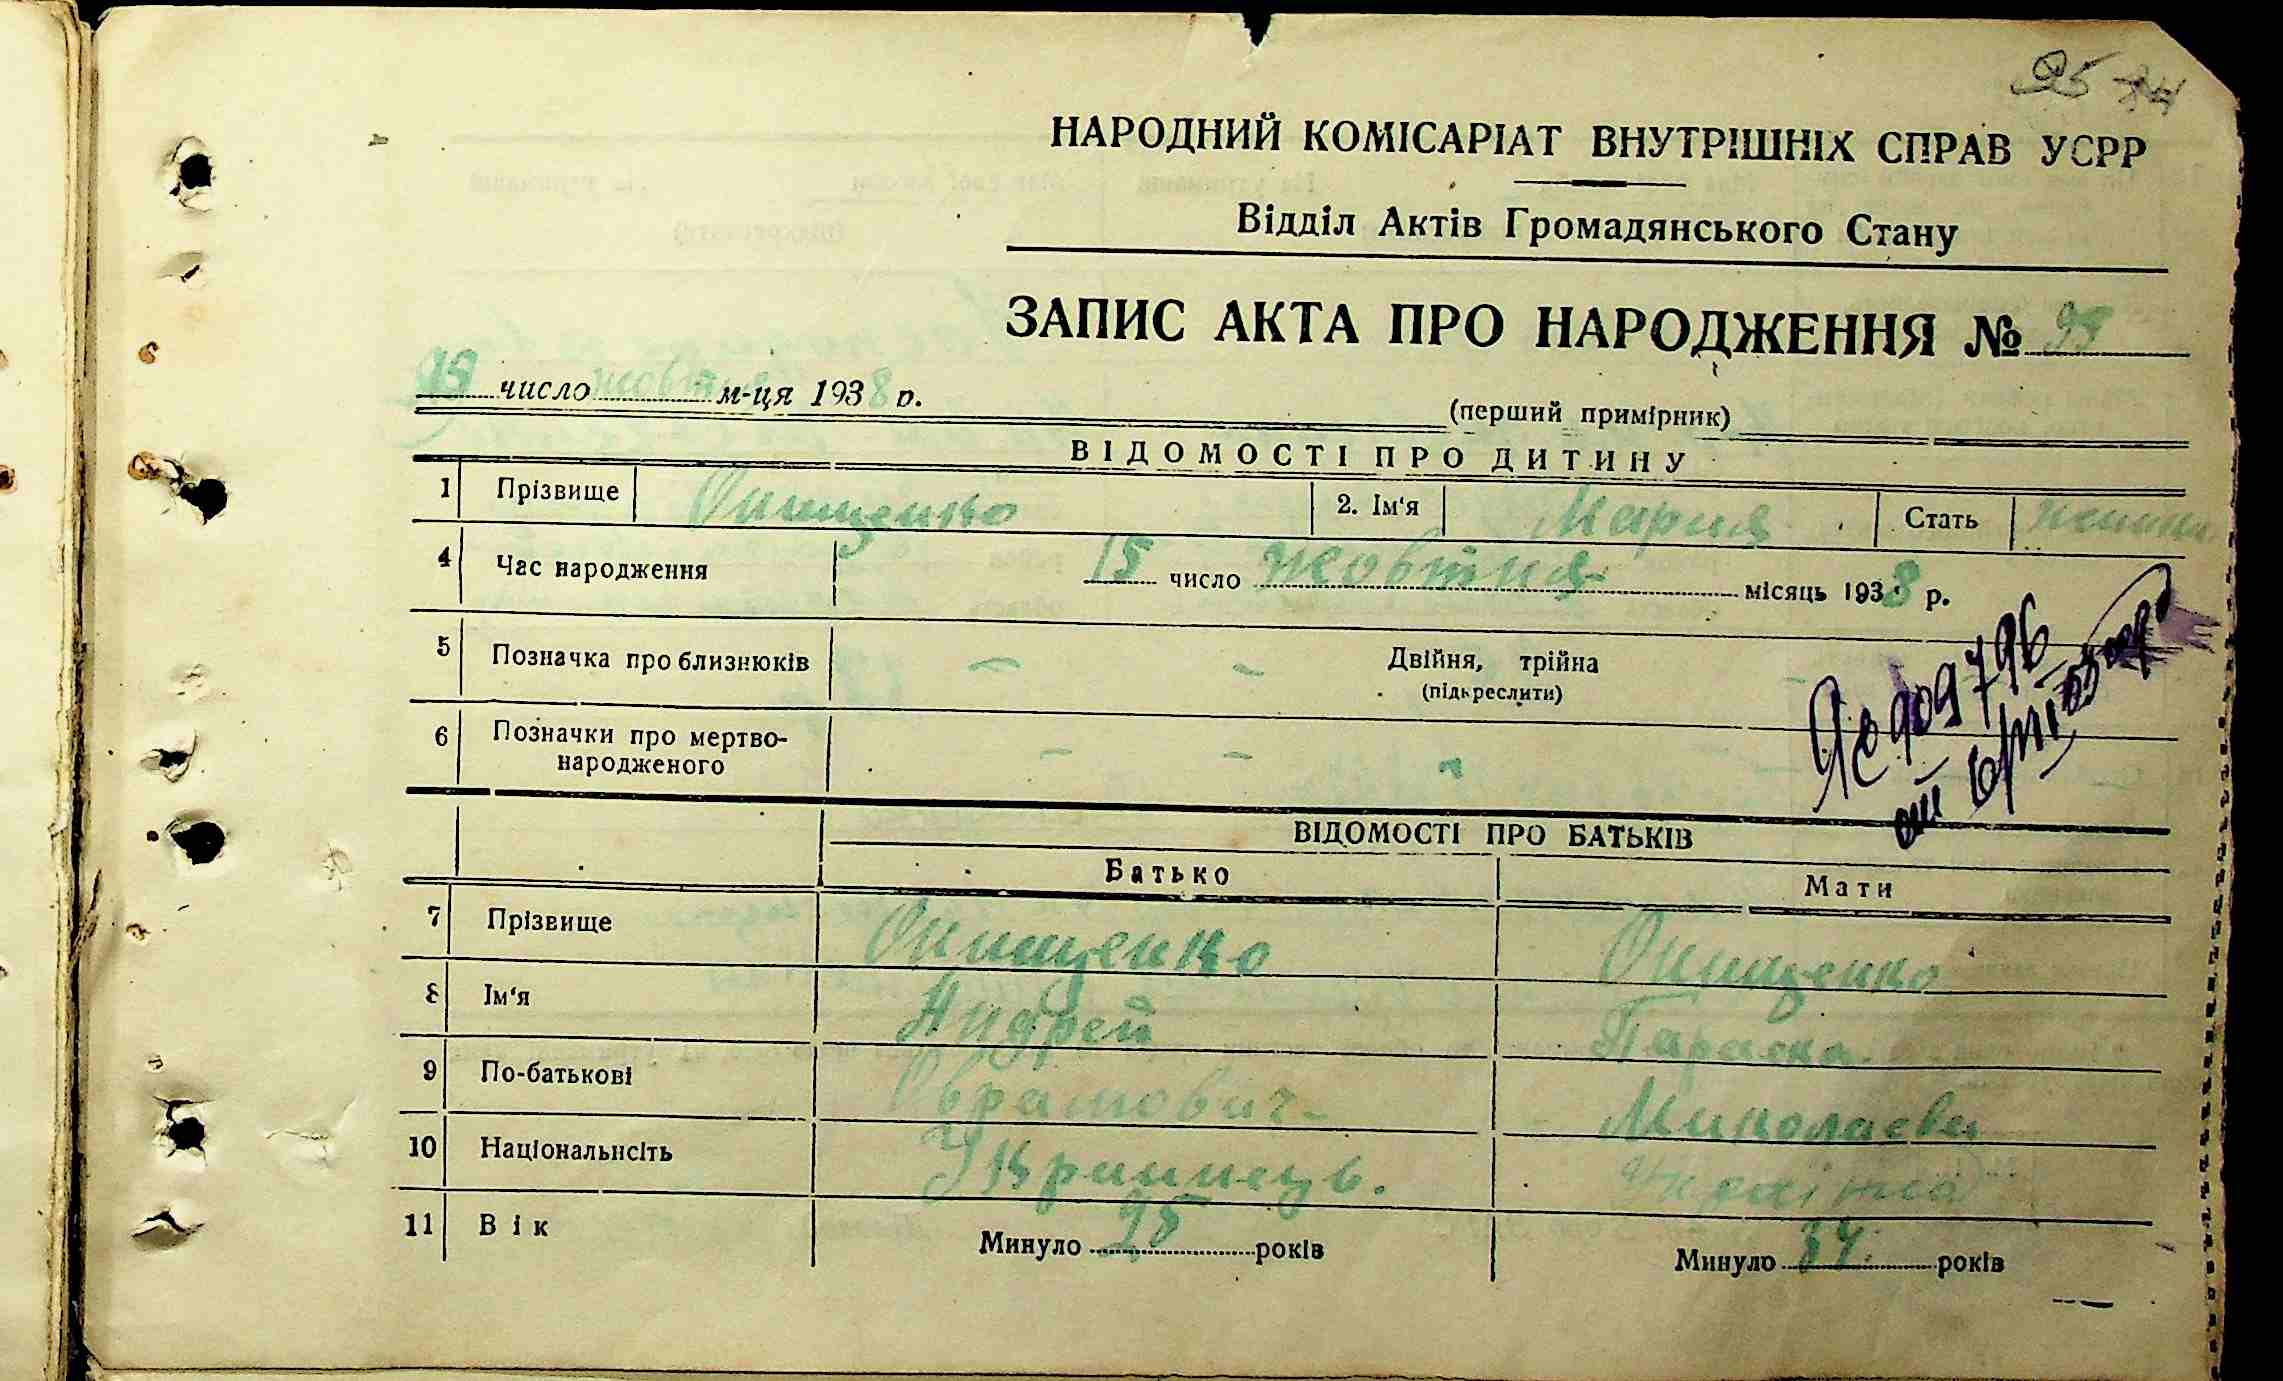 НАРОДНИЙ КОМІСАРІАТ ВНУТРІШНІХ СПРАВ УСРР
Відділ Актів Громадянського Стану
ЗАПИС АКТА ПРО НАРОДЖЕННЯ №
число жовтня м-ця 1938 р.
(перший примірник)
ВІДОМОСТІ ПРО ДИТИНУ
1 Прізвище Онищенко 2. Ім'я Мария Стать
4 Час народження 15 число жовтня місяць 1938 р.
5 Позначка про близнюків - - Двійня, трійна
(підкреслити)
6 Позначки про мертво-
народженого - - -
Яс 909796
ВІДОМОСТІ ПРО БАТЬКІВ
Батько Мати
7 Прізвище Онищенко Онищенко
8 Ім'я Андрей Параска
9 По-батькові Миколаевна
10 Національність Украинець.
11 Вік Минуло 25 років Минуло років